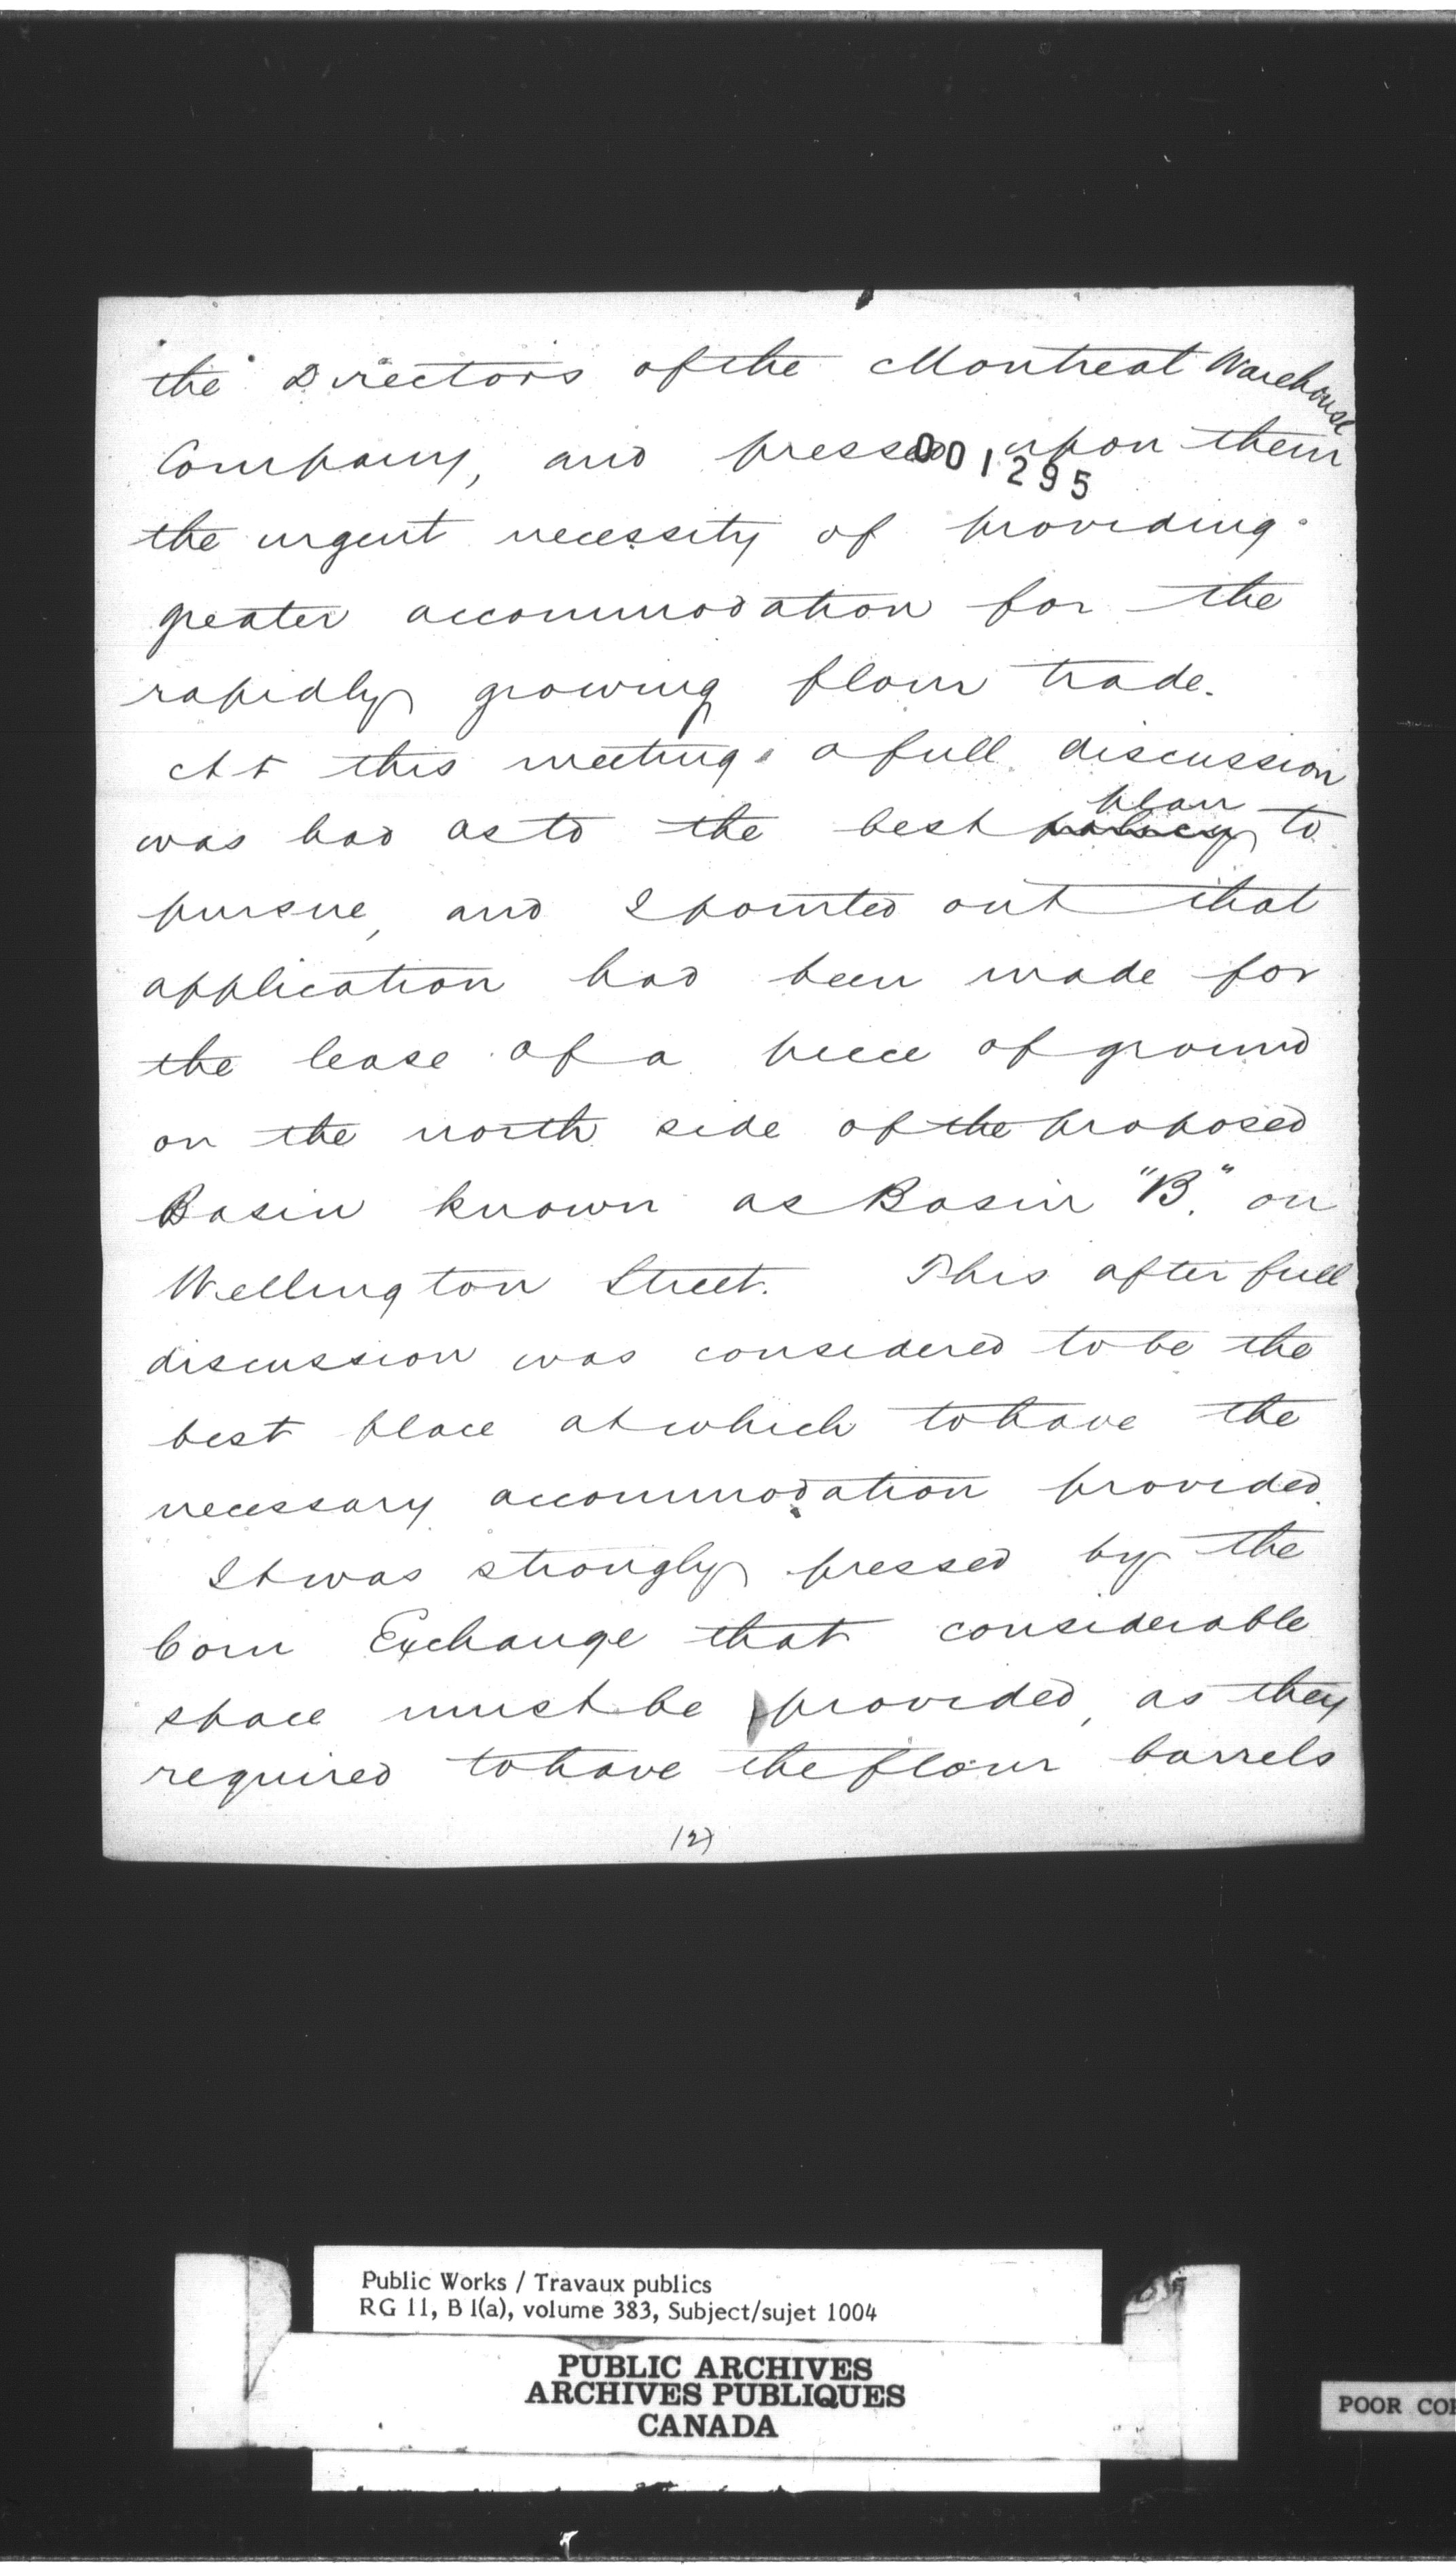 the Directors of the Montreal Warehouse
Company, and pressed upon them
001295
the urgent necessity of providing
greater accommodation for the
rapidly growing flour trade.
At this meeting a full discussion
plan
was had as to the best policy to
pursue, and I pointed out that
application had been made for
the lease of a piece of ground
on the north side of the proposed
Basin known as Basin "B." on
Wellington Street. This after full
discussion was considered to be the
best place at which to have the
necessary accommodation provided.
It was strongly pressed by the
Corn Exchange that considerable
space must be provided, as they
required to have the flour barrels
(2)
Public Works / Travaux publics
RG 11, B 1(a), volume 383, Subject/sujet 1004
PUBLIC ARCHIVES
ARCHIVES PUBLIQUES
CANADA
POOR COP